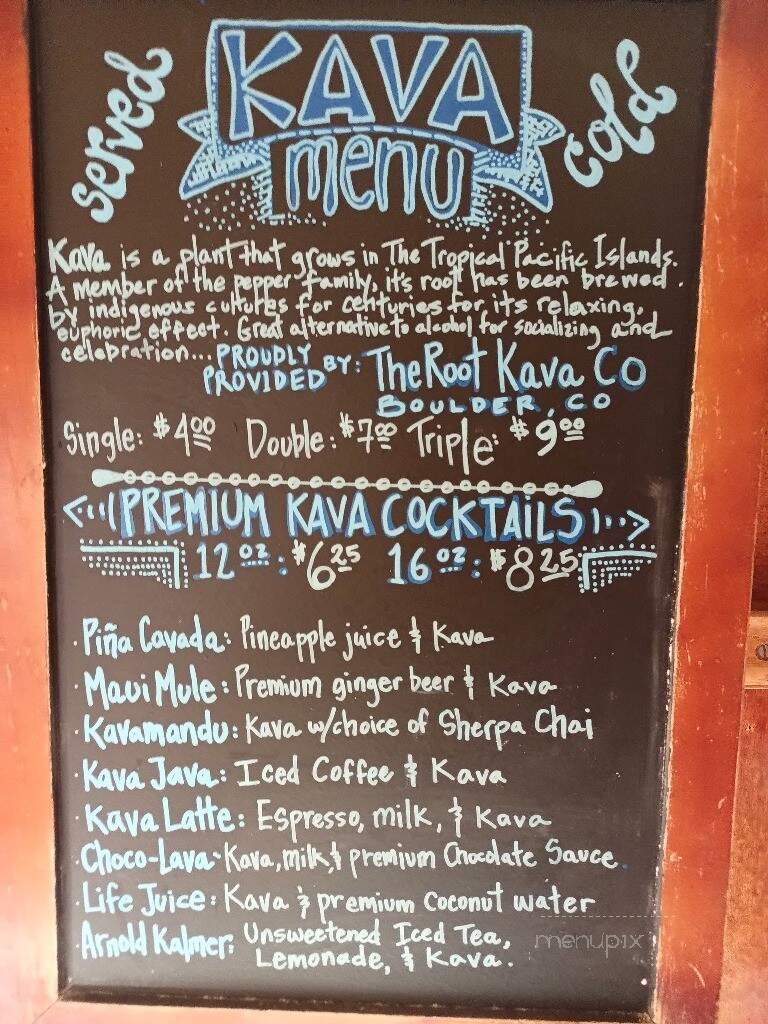 served KAVA cold
menu
Kava is a plant that grows in The Tropical Pacific Islands.
A member of the pepper family, it's root has been brewed
by indigenous cultures for centuries for its relaxing,
euphoric effect. Great alternative to alcohol for socializing and
celebration... PROUDLY PROVIDED BY: The Root Kava Co
BOULDER, CO
Single: $4.00 Double: $7.00 Triple: $9.00
PREMIUM KAVA COCKTAILS
12 oz: $6.25 16 oz: $8.25
· Piña Cavada: Pineapple juice & Kava
· Maui Mule: Premium ginger beer & Kava
· Kavamandu: Kava w/choice of Sherpa Chai
· Kava Java: Iced Coffee & Kava
· Kava Latte: Espresso, milk, & Kava
· Choco-Lava- Kava, milk, & premium Chocolate Sauce.
· Life Juice: Kava & premium Coconut water
· Arnold Kalmer: Unsweetened Iced Tea,
Lemonade, & Kava.
menupix